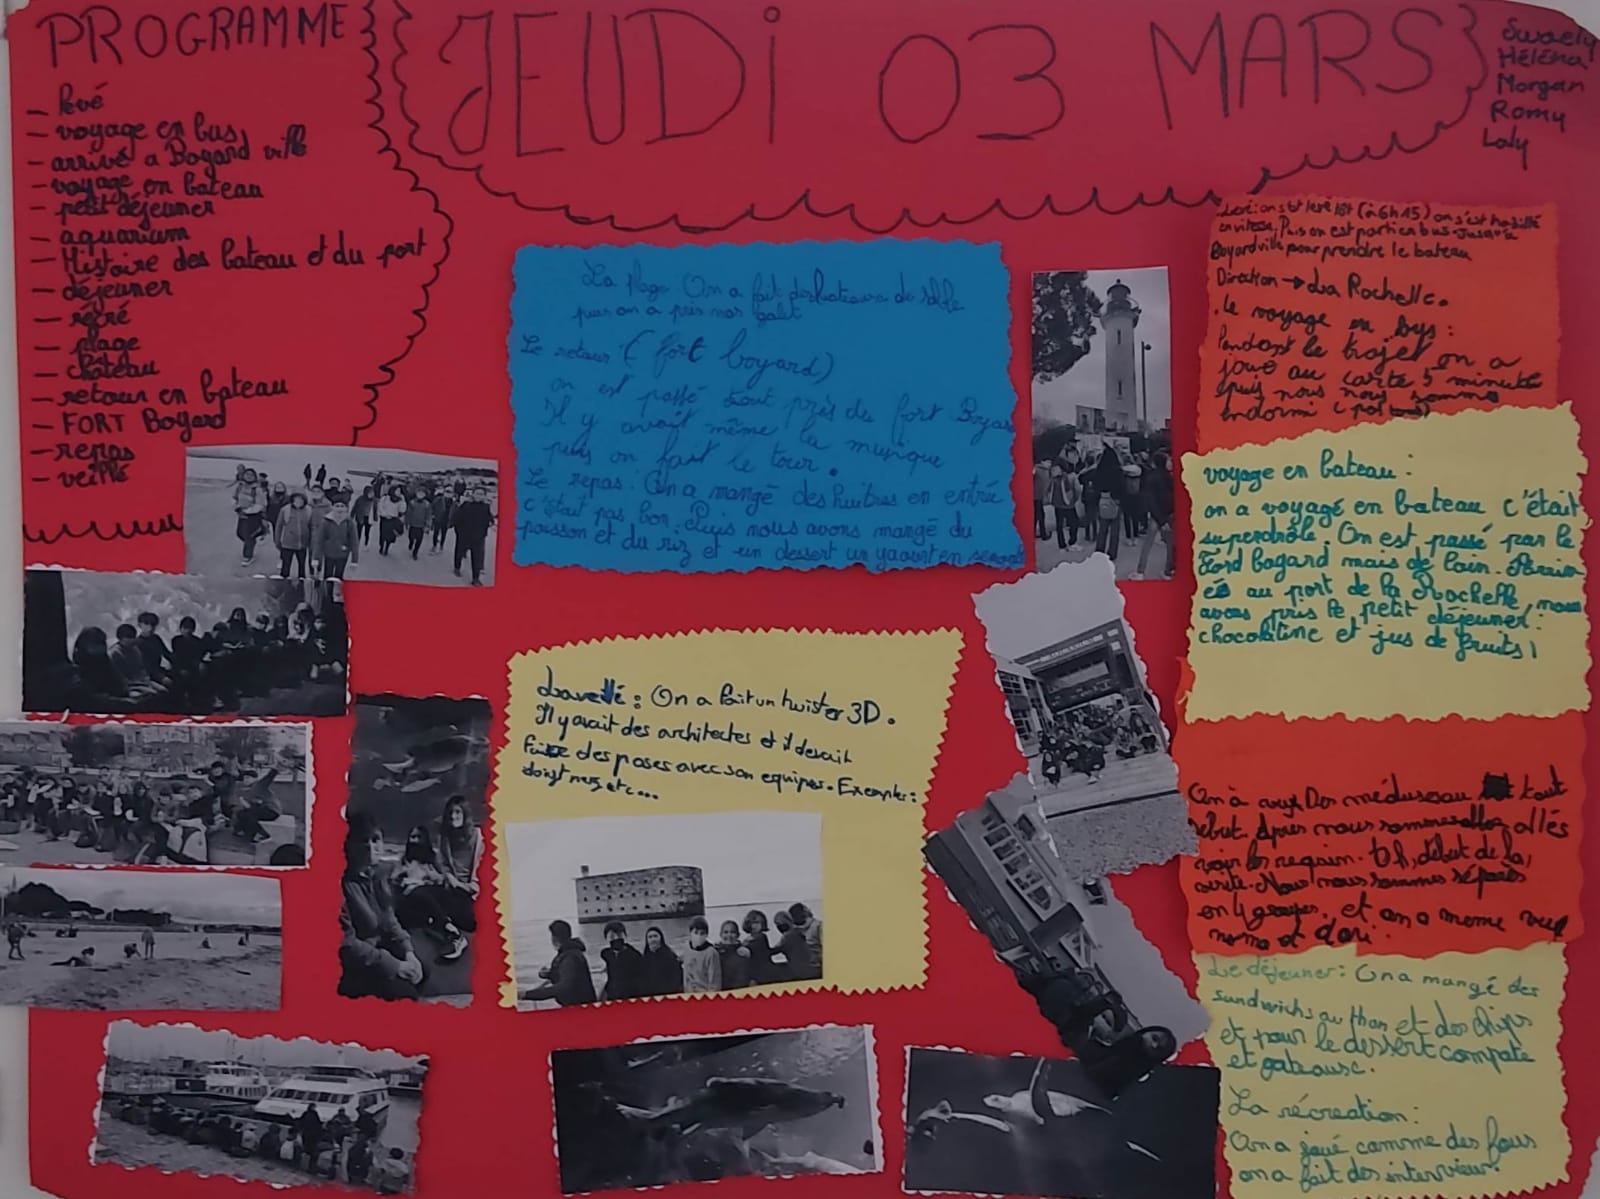 PROGRAMME
- levé
- voyage en bus
- arrivé a Boyard ville
- voyage en bateau
- petit déjeuner
- aquarium
- Histoire des bateau et du port
- déjeuner
- récré
- plage
- château
- retour en bateau
- FORT Boyard
- repas
- veillé
JEUDi 03 MARS
Swaely
Héléna
Morgan
Romy
Laly
La plage On a fait des bateaux de sable
puis on a pris nos
Le retour (fort boyard)
on est passé tout près du fort Boyar
Il y avait même la musique
puis on fait le tour.
Le repas: On a mangé des huîtres en entrée
c'était pas bon. Puis nous avons mangé du
poisson et du riz et un dessert un yaourt en
on s'est levé tôt (à 6h15) on s'est habillé
en vitesse, Puis on est parti en bus jusqu'à
Boyardville pour prendre le bateau
Direction → La Rochelle.
.le voyage en bus:
Pendant le trajet on a
joué au carte 5 minutes
puis nous nous sommes
endormi (pas tous)
voyage en bateau:
on a voyagé en bateau c'était
superdrôle. On est passé par le
Ford bogard mais de loin. Arrivé
és au port de la Rochelle, nous
avons pris le petit déjeuner:
chocolatine et jus de fruits!
La veillé: On a fait un twister 3D.
Il y avait des architectes et il devait
faire des poses avec son équipe. Exemple:
doigt nez, etc...
On à vu Des méduses au tout
début. Apres nous sommes allés
voir les requin. début de la
visite. Nous nous sommes séparés
en 4 groupes. et on a meme vu
nemo et dori.
Le déjeuner: On a mangé des
sandwichs au thon et des chips
et pour le dessert compote
et gateaux.
La récreation:
On a joué comme des fous
on a fait des interview.